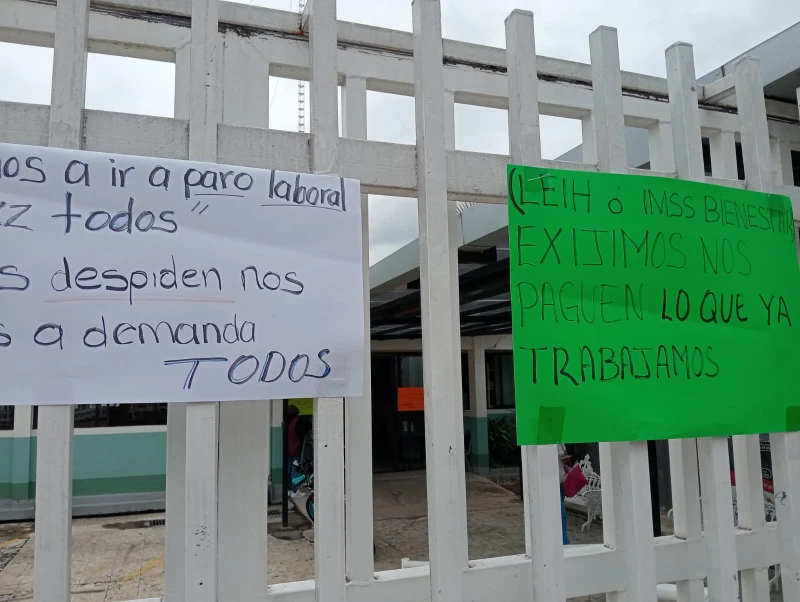 os a ir a paro laboral
ez todos"
s despiden nos
s a demanda
TODOS
(LEIH ó IMSS BIENESTAR
EXIJIMOS NOS
PAGUEN LO QUE YA
TRABAJAMOS